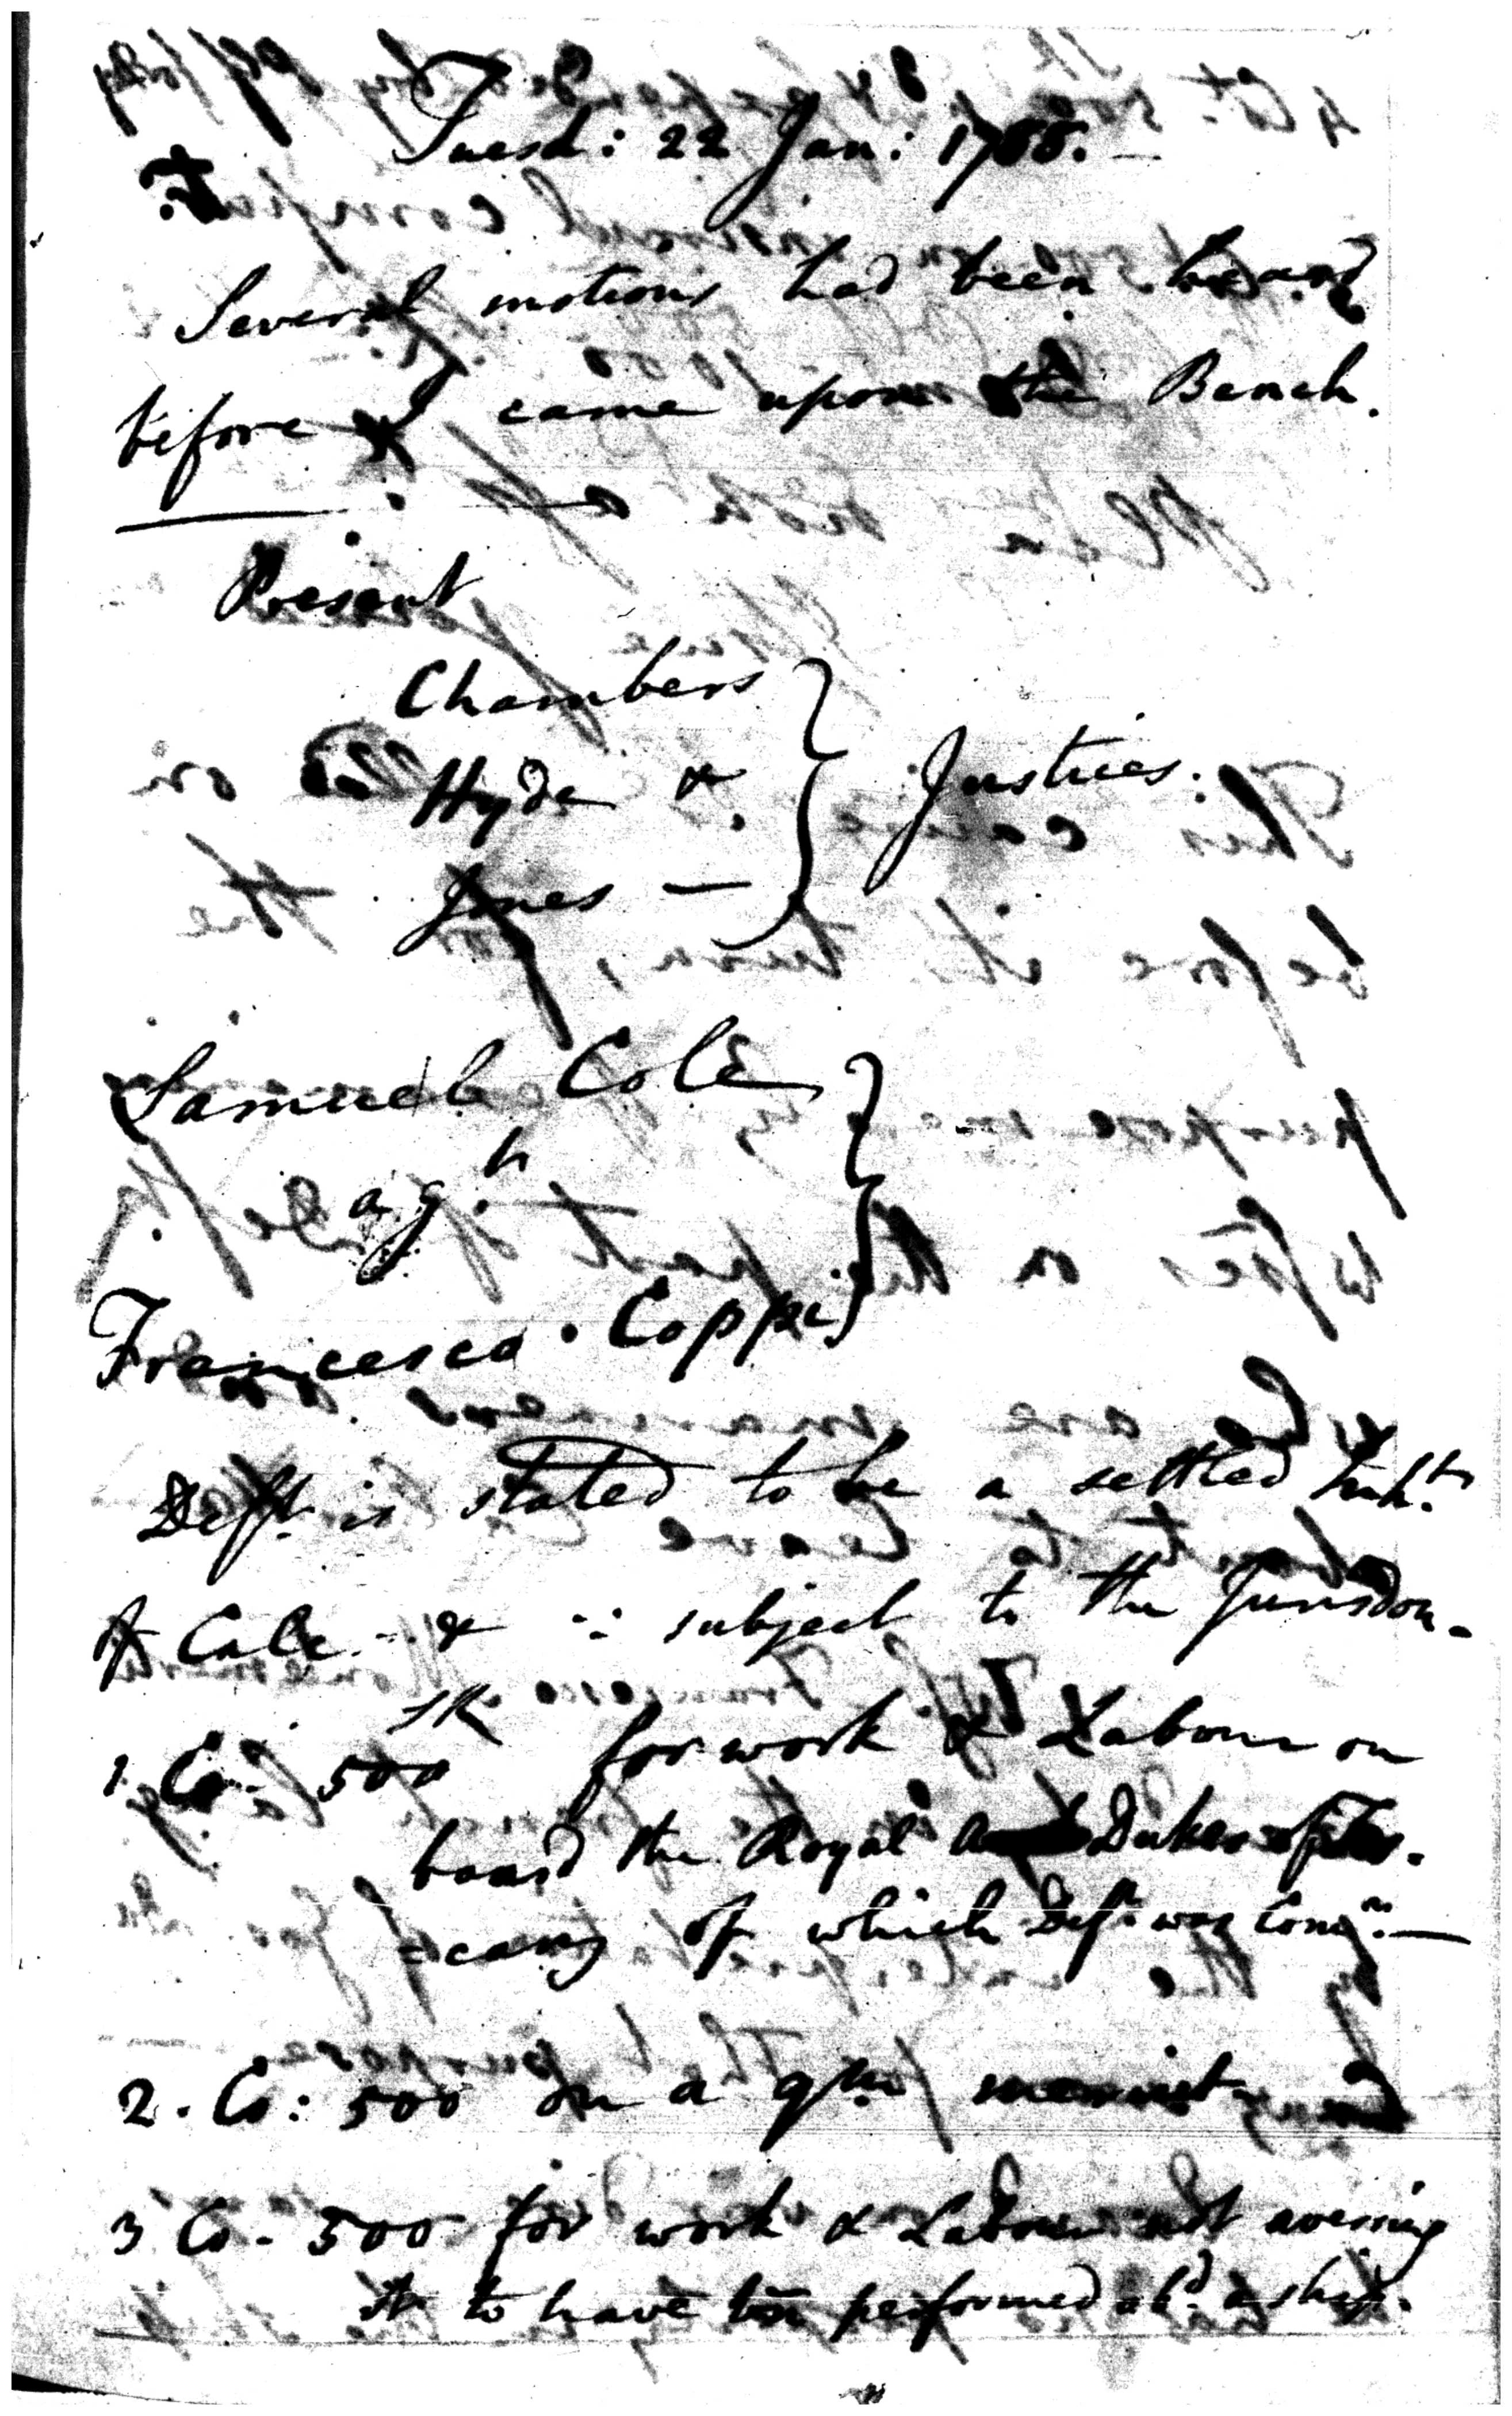 Tuesd: 22 Jan: 1788. —
Several motions had been heard
before I came upon the Bench.
Present
Chambers
Hyde &
Jones —
Justices.
Samuel Cole
ag.t
Francesco Coppi
Deft. is stated to be a settled Inh.t
of Calc. - & ∵ subject to the Jurisdon.
1. Co. 500 SR for work & Labour on
board the Royal Duke of Tus-
=cany of which Deft. was Com.r —
2. Co: 500 on a qm merint
3 Co - 500 for work & Labour not averring
it to have bñ performed ab.d a ship.